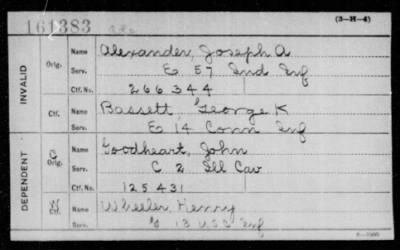 161383
(3-H-4)
INVALID
Orig.
Name Alexander, Joseph A
Serv. E 57 Ind Inf
Ctf. No. 266344
Ctf.
Name Bassett, George K
Serv. E 14 Conn Inf
DEPENDENT
C
Orig.
Name Goodheart, John
Serv. C 2 Ill Cav
Ctf. No. 125431
W
Ctf.
Name Wheeler, Henry
Serv. G 13 U.S.C. Inf